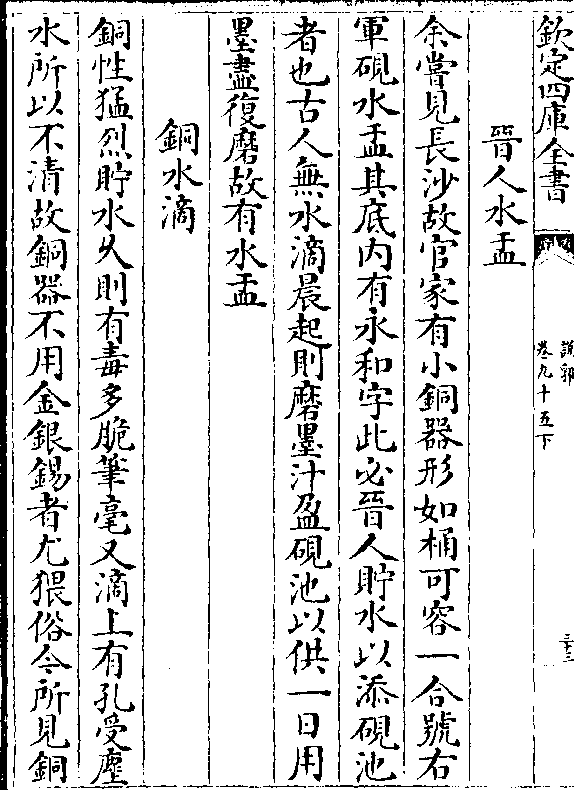 欽定四庫全書
說郛
卷九十五下
三十三
晉人水盂
余嘗見長沙故官家有小銅器形如桶可容一合號右
軍硯水盂其底内有永和字此必晉人貯水以添硯池
者也古人無水滴晨起則磨墨汁盈硯池以供一日用
墨盡復磨故有水盂
銅水滴
銅性猛烈貯水久則有毒多脆筆毫又滴上有孔受塵
水所以不清故銅器不用金銀錫者尤猥俗今所見銅